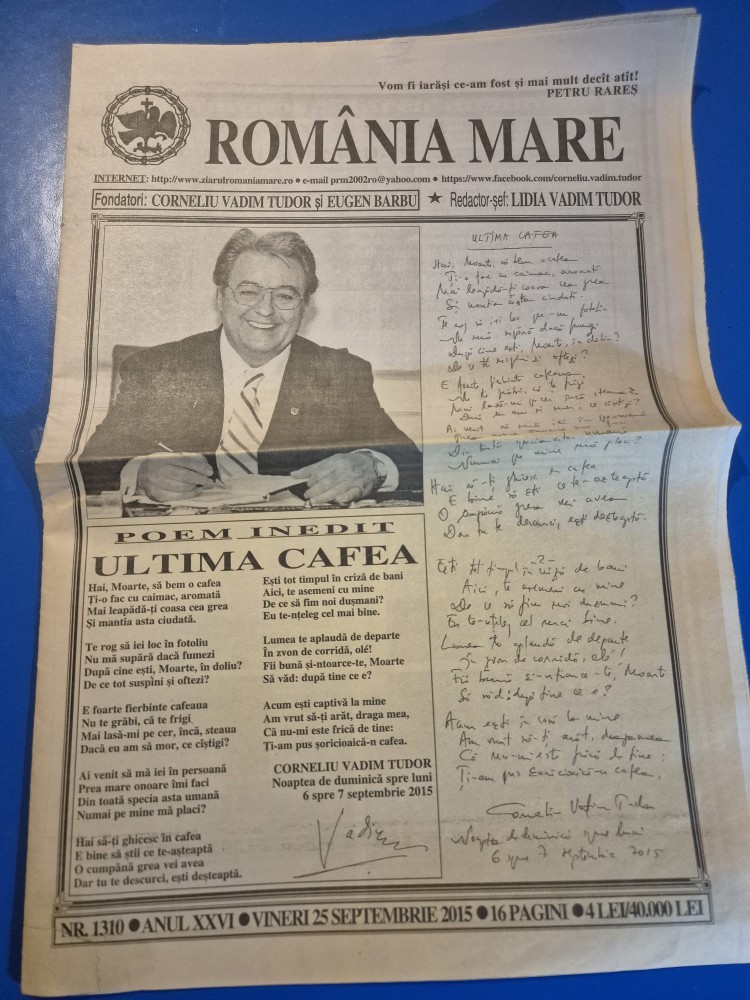 Vom fi iarăși ce-am fost și mai mult decît atît!
PETRU RAREȘ
ROMÂNIA MARE
INTERNET: http://www.ziarulromaniamare.ro ● e-mail prm2002ro@yahoo.com ● https://www.facebook.com/corneliu.vadim.tudor
Fondatori: CORNELIU VADIM TUDOR și EUGEN BARBU ★ Redactor-șef: LIDIA VADIM TUDOR
POEM INEDIT
ULTIMA CAFEA
Hai, Moarte, să bem o cafea
Ți-o fac cu caimac, aromată
Mai leapădă-ți coasa cea grea
Și mantia asta ciudată.
Te rog să iei loc în fotoliu
Nu mă supără dacă fumezi
După cine ești, Moarte, în doliu?
De ce tot suspini și oftezi?
E foarte fierbinte cafeaua
Nu te grăbi, că te frigi
Mai lasă-mi pe cer, încă, steaua
Dacă eu am să mor, ce cîștigi?
Ai venit să mă iei în persoană
Prea mare onoare îmi faci
Din toată specia asta umană
Numai pe mine mă placi?
Hai să-ți ghicesc în cafea
E bine să știi ce te-așteaptă
O cumpănă grea vei avea
Dar tu te descurci, ești deșteaptă.
Ești tot timpul în criză de bani
Aici, te asemeni cu mine
De ce să fim noi dușmani?
Eu te-nțeleg cel mai bine.
Lumea te aplaudă de departe
În zvon de corridă, olé!
Fii bună și-ntoarce-te, Moarte
Să văd: după tine ce e?
Acum ești captivă la mine
Am vrut să-ți arăt, draga mea,
Că nu-mi este frică de tine:
Ți-am pus șoricioaică-n cafea.
CORNELIU VADIM TUDOR
Noaptea de duminică spre luni
6 spre 7 septembrie 2015
Vadim
ULTIMA CAFEA
Hai, Moarte, să bem o cafea
Ți-o fac cu caimac, aromată
Mai leapădă-ți coasa cea grea
Și mantia asta ciudată.
Te rog să iei loc în fotoliu
Nu mă supără dacă fumezi
După cine ești, Moarte, în doliu?
De ce tot suspini și oftezi?
E foarte fierbinte cafeaua
Nu te grăbi, că te frigi
Mai lasă-mi pe cer, încă, steaua
Dacă eu am să mor, ce cîștigi?
Ai venit să mă iei în persoană
Din toată specia asta umană
Numai pe mine mă placi?
Hai să-ți ghicesc în cafea
E bine să știi ce te-așteaptă
O cumpănă grea vei avea
Dar tu te descurci, ești deșteaptă.
-2-
Ești tot timpul în criză de bani
Aici, te asemeni cu mine
De ce să fim noi dușmani?
Eu te-nțeleg cel mai bine.
Lumea te aplaudă de departe
În zvon de corridă, olé!
Fii bună și-ntoarce-te, Moarte
Să văd: după tine ce e?
Acum ești în casă la mine
Am vrut să-ți arăt, draga mea
Că nu-mi este frică de tine:
Ți-am pus șoricioaică-n cafea.
Corneliu Vadim Tudor
Noaptea de duminică spre luni
6 spre 7 septembrie 2015
NR. 1310 ● ANUL XXVI ● VINERI 25 SEPTEMBRIE 2015 ● 16 PAGINI ● 4 LEI/40.000 LEI